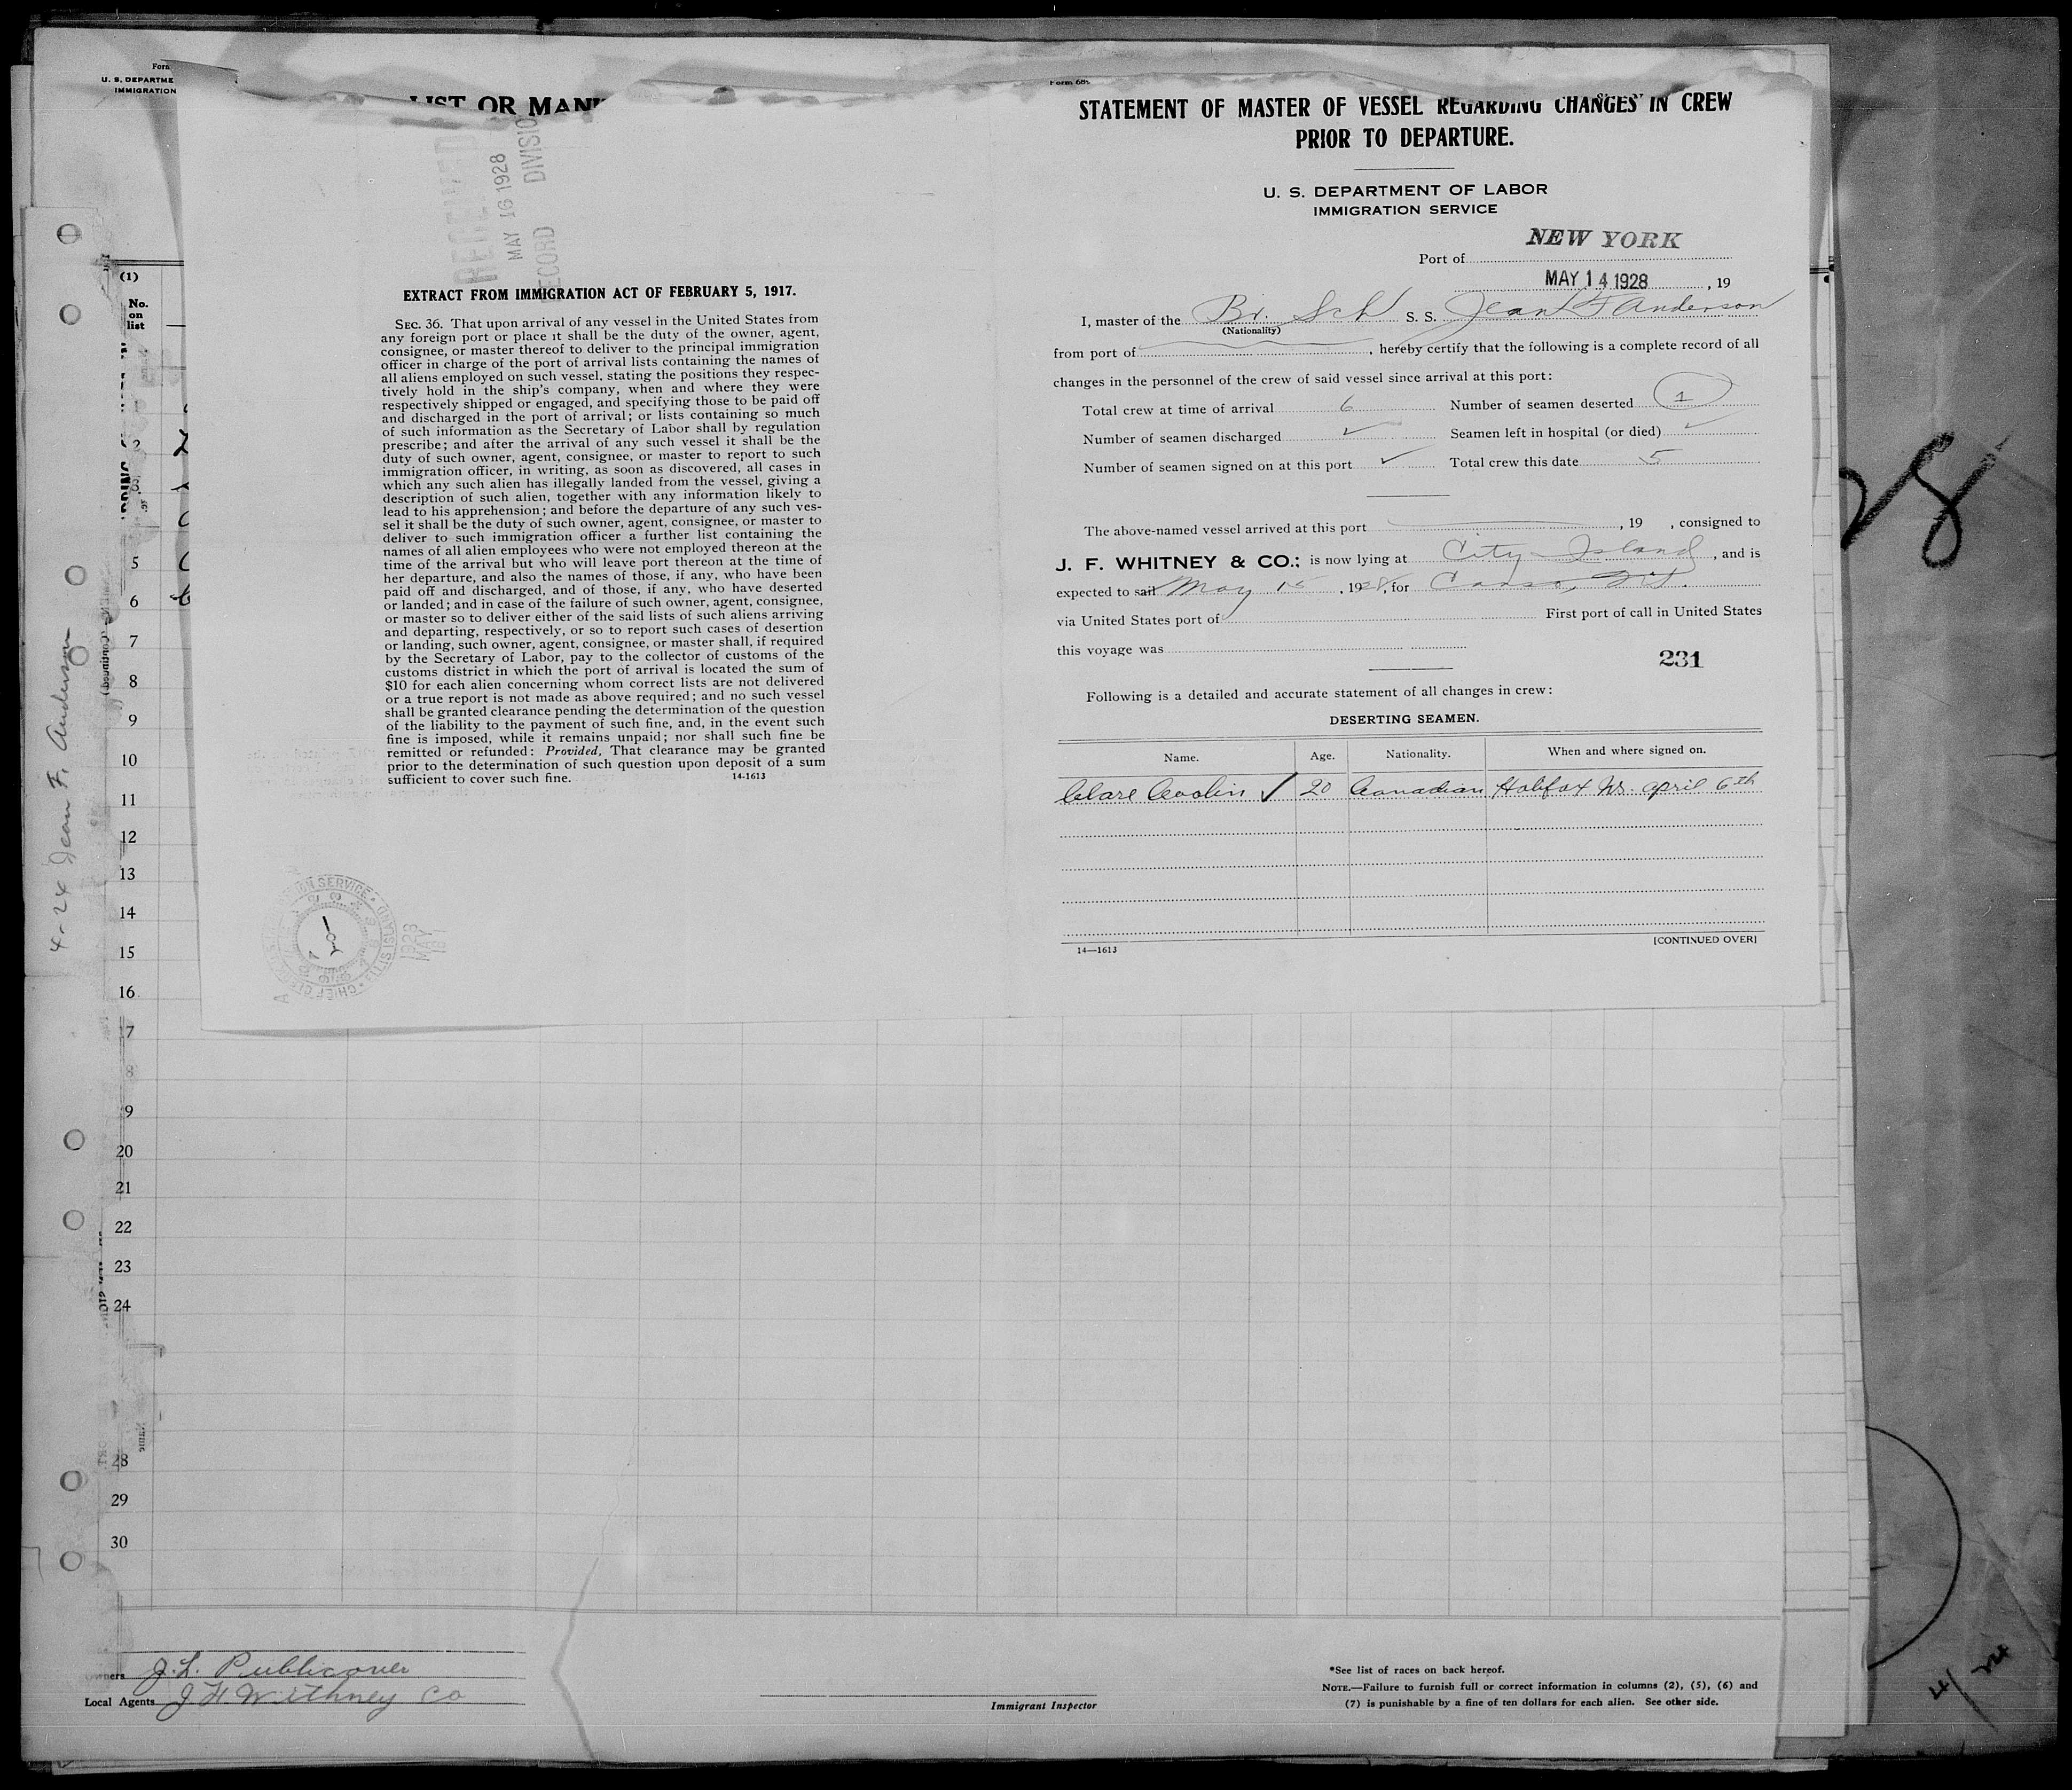 Form
U. S. DEPARTME
IMMIGRATION
LIST OR MAN
RECEIVED
MAY 16 1928
RECORD DIVISIO
EXTRACT FROM IMMIGRATION ACT OF FEBRUARY 5, 1917.
SEC. 36. That upon arrival of any vessel in the United States from
any foreign port or place it shall be the duty of the owner, agent,
consignee, or master thereof to deliver to the principal immigration
officer in charge of the port of arrival lists containing the names of
all aliens employed on such vessel, stating the positions they respec-
tively hold in the ship's company, when and where they were
respectively shipped or engaged, and specifying those to be paid off
and discharged in the port of arrival; or lists containing so much
of such information as the Secretary of Labor shall by regulation
prescribe; and after the arrival of any such vessel it shall be the
duty of such owner, agent, consignee, or master to report to such
immigration officer, in writing, as soon as discovered, all cases in
which any such alien has illegally landed from the vessel, giving a
description of such alien, together with any information likely to
lead to his apprehension; and before the departure of any such ves-
sel it shall be the duty of such owner, agent, consignee, or master to
deliver to such immigration officer a further list containing the
names of all alien employees who were not employed thereon at the
time of the arrival but who will leave port thereon at the time of
her departure, and also the names of those, if any, who have been
paid off and discharged, and of those, if any, who have deserted
or landed; and in case of the failure of such owner, agent, consignee,
or master so to deliver either of the said lists of such aliens arriving
and departing, respectively, or so to report such cases of desertion
or landing, such owner, agent, consignee, or master shall, if required
by the Secretary of Labor, pay to the collector of customs of the
customs district in which the port of arrival is located the sum of
$10 for each alien concerning whom correct lists are not delivered
or a true report is not made as above required; and no such vessel
shall be granted clearance pending the determination of the question
of the liability to the payment of such fine, and, in the event such
fine is imposed, while it remains unpaid; nor shall such fine be
remitted or refunded: Provided, That clearance may be granted
prior to the determination of such question upon deposit of a sum
sufficient to cover such fine. 14-1613
Form 68
STATEMENT OF MASTER OF VESSEL REGARDING CHANGES IN CREW
PRIOR TO DEPARTURE.
U. S. DEPARTMENT OF LABOR
IMMIGRATION SERVICE
NEW YORK
Port of
MAY 14 1928, 19
I, master of the Br. Sch S. S. Jean F Anderson
(Nationality)
from port of , hereby certify that the following is a complete record of all
changes in the personnel of the crew of said vessel since arrival at this port:
Total crew at time of arrival 6 Number of seamen deserted 1
Number of seamen discharged ✓ Seamen left in hospital (or died) ✓
Number of seamen signed on at this port ✓ Total crew this date 5
The above-named vessel arrived at this port , 19 , consigned to
J. F. WHITNEY & CO.; is now lying at City Island, and is
expected to sail May 15, 1928, for Canso,
via United States port of First port of call in United States
this voyage was
231
Following is a detailed and accurate statement of all changes in crew:
DESERTING SEAMEN.
Name. Age. Nationality. When and where signed on.
Clare ✓ 20 Canadian Halifax NS. april 6th
14—1613 [CONTINUED OVER]
(1)
No.
on
list
2
5
6
7
8
9
10
11
12
13
14
15
16
7
8
9
20
21
22
23
24
28
29
30
4-24 Jean F. Anderson
28
4/24
ELLIS ISLAND
CHIEF CLERK
1928
MAY
J. L. Publicover
Local Agents J H Withney Co
Immigrant Inspector
*See list of races on back hereof.
NOTE.—Failure to furnish full or correct information in columns (2), (5), (6) and
(7) is punishable by a fine of ten dollars for each alien. See other side.